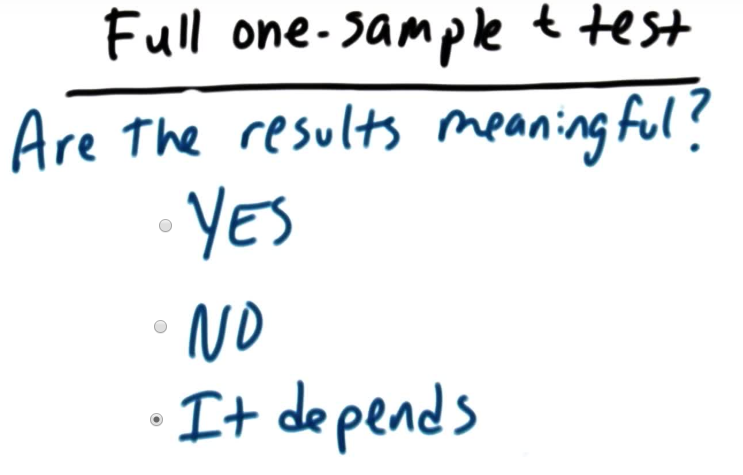 Full one-sample t test
Are the results meaningful?
YES
NO
It depends